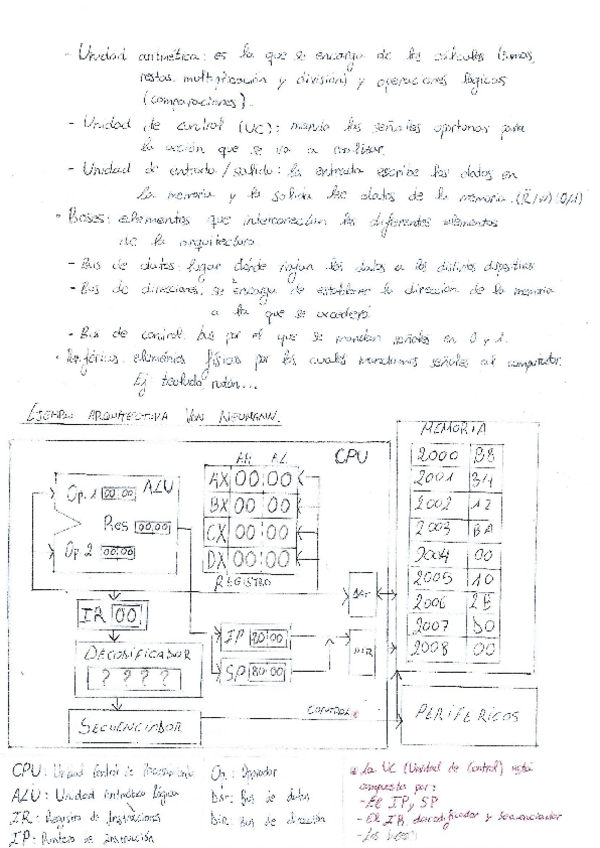 - Unidad aritmética: es la que se encarga de los cálculos (sumas,
restas, multiplicación y división) y operaciones lógicas
(comparaciones).
- Unidad de control (UC): manda las señales oportunas para
la acción que se va a realizar.
- Unidad de entrada/salida: la entrada escribe los datos en
la memoria y la salida lee datos de la memoria. (R/W) (0/1)
- Buses: elementos que interconectan los diferentes elementos
de la arquitectura.
- Bus de datos: lugar dónde viajan los datos a los distintos dispositivos
- Bus de direcciones: se encarga de establecer la dirección de la memoria
a la que se accederá
- Bus de control: bus por el que se mandan señales en 0 y 1.
· Periféricos: elementos físicos por los cuales mandamos señales al computador.
Ej teclado, ratón...
EJEMPLO ARQUITECTURA VON NEUMANN.
MEMORIA
AH AL CPU
Op. 1 00:00 ALU
Res 00:00
Op. 2 00:00
AX 00:00
BX 00:00
CX 00:00
DX 00:00
REGISTRO
2000 B8
2001 34
2002 12
2003 BA
2004 00
2005 10
2006 2E
2007 D0
2008 00
IR 00
DECODIFICADOR
? ? ? ?
SECUENCIADOR
IP 20:00
SP 80:00
DIR
CONTROL
PERIFERICOS
CPU: Unidad Central de Procesamiento
ALU: Unidad Aritmético Lógica
IR: Registro de Instrucciones
IP: Puntero de Instrucción
Op.: Operador
Dat: Bus de datos
Dir: Bus de dirección
* La UC (Unidad de Control) está
compuesta por:
- El IP y SP
- El IR, decodificador y secuenciador